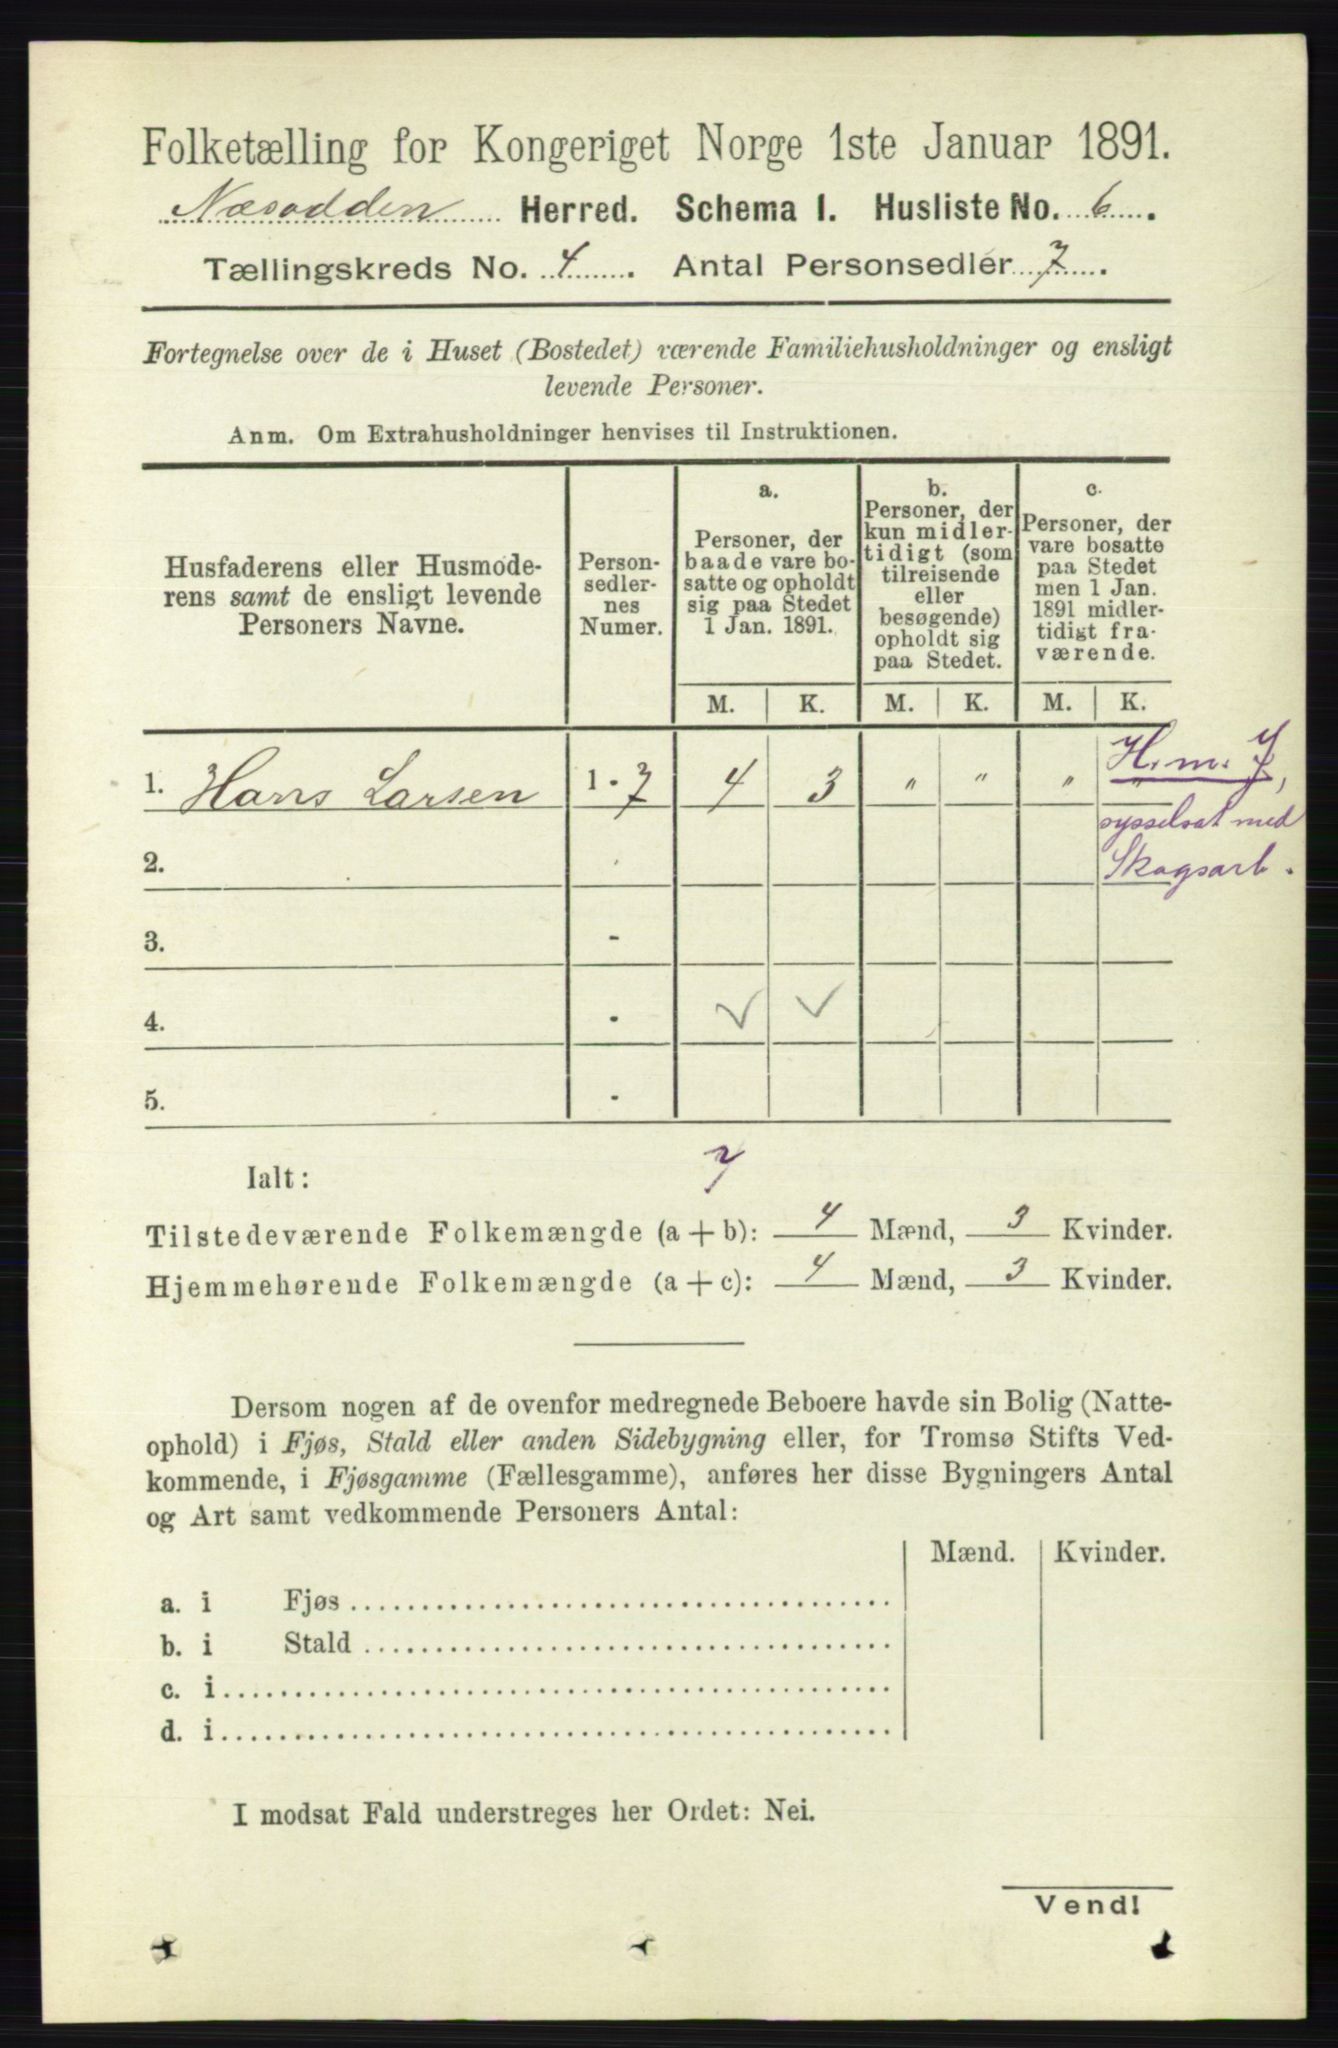 Folketælling for Kongeriget Norge 1ste Januar 1891.
Næsodden Herred. Schema I. Husliste No. 6.
Tællingskreds No. 4. Antal Personsedler 7.
Fortegnelse over de i Huset (Bostedet) værende Familiehusholdninger og ensligt
levende Personer.
Anm. Om Extrahusholdninger henvises til Instruktionen.
Husfaderens eller Husmode-
rens samt de ensligt levende
Personers Navne.
Person-
sedler-
nes
Numer.
a.
Personer, der
baade vare bo-
satte og opholdt
sig paa Stedet
1 Jan. 1891.
b.
Personer, der
kun midler-
tidigt (som
tilreisende
eller
besøgende)
opholdt sig
paa Stedet.
c.
Personer, der
vare bosatte
paa Stedet
men 1 Jan.
1891 midler-
tidigt fra-
værende.
M. K. M. K. M. K.
1. Hans Larsen 1 - 7 4 3 " " " "
H. m. J,
sysselsat med
Skogsarb.
2.
3. -
4. -
5. -
Ialt: 7
Tilstedeværende Folkemængde (a + b): 4 Mænd, 3 Kvinder.
Hjemmehørende Folkemængde (a + c): 4 Mænd, 3 Kvinder.
Dersom nogen af de ovenfor medregnede Beboere havde sin Bolig (Natte-
ophold) i Fjøs, Stald eller anden Sidebygning eller, for Tromsø Stifts Ved-
kommende, i Fjøsgamme (Fællesgamme), anføres her disse Bygningers Antal
og Art samt vedkommende Personers Antal:
Mænd. Kvinder.
a. i Fjøs
b. i Stald
c. i
d. i
I modsat Fald understreges her Ordet: Nei.
Vend!